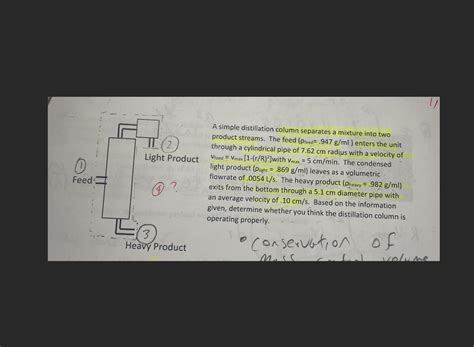 1)
A simple distillation column separates a mixture into two
product streams. The feed (ρfeed= .947 g/ml ) enters the unit
through a cylindrical pipe of 7.62 cm radius with a velocity of
vfeed = vmax [1-(r/8)²]with vmax = 5 cm/min. The condensed
light product (ρlight = .869 g/ml) leaves as a volumetric
flowrate of .0054 L/s. The heavy product (ρheavy = .982 g/ml)
exits from the bottom through a 5.1 cm diameter pipe with
an average velocity of .10 cm/s. Based on the information
given, determine whether you think the distillation column is
operating properly.
2
Light Product
1
Feed
4 ?
3
Heavy Product
• conservation of
mass control volume